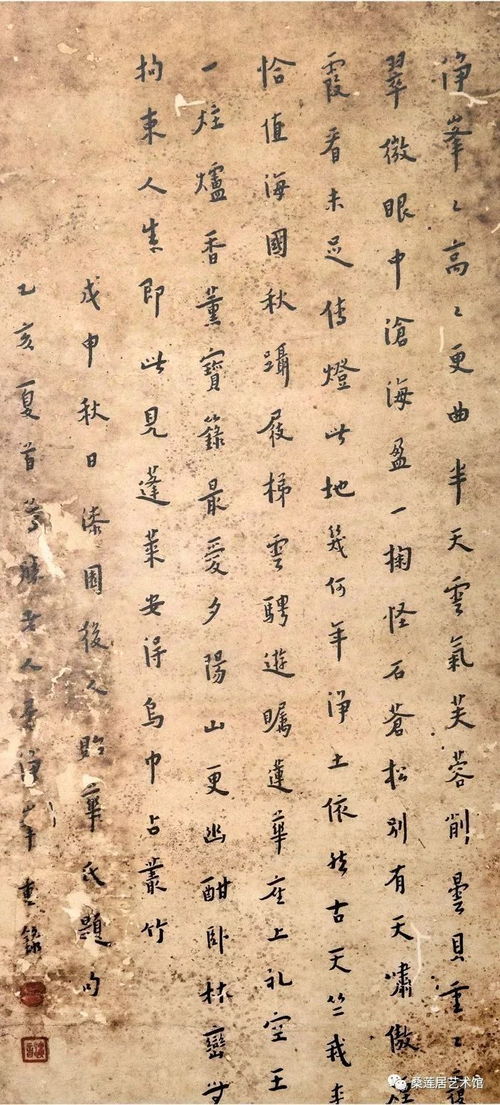 淨峯々高々更曲半天雲氣芙蓉削曇貝重々履
翠微眼中滄海盈一掬怪石蒼松別有天嘯傲煙
霞看未足傳燈此地幾何年淨土依然古天竺我來
恰值海國秋躡屐梯雲騁遊矚蓮華座上礼空王
一炷爐香薰寶籙最愛夕陽山更幽酣臥林巒
拘束人生即此見蓬萊安得烏巾占叢竹
戊申秋日漆園後人貽華氏題句
乙亥夏首老人淨峯重錄
桑莲居艺术馆